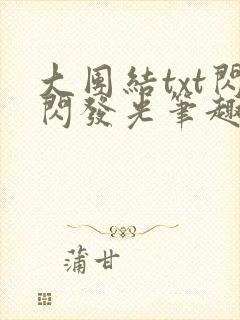 大團結txt閃
閃發光筆趣
蒲甘